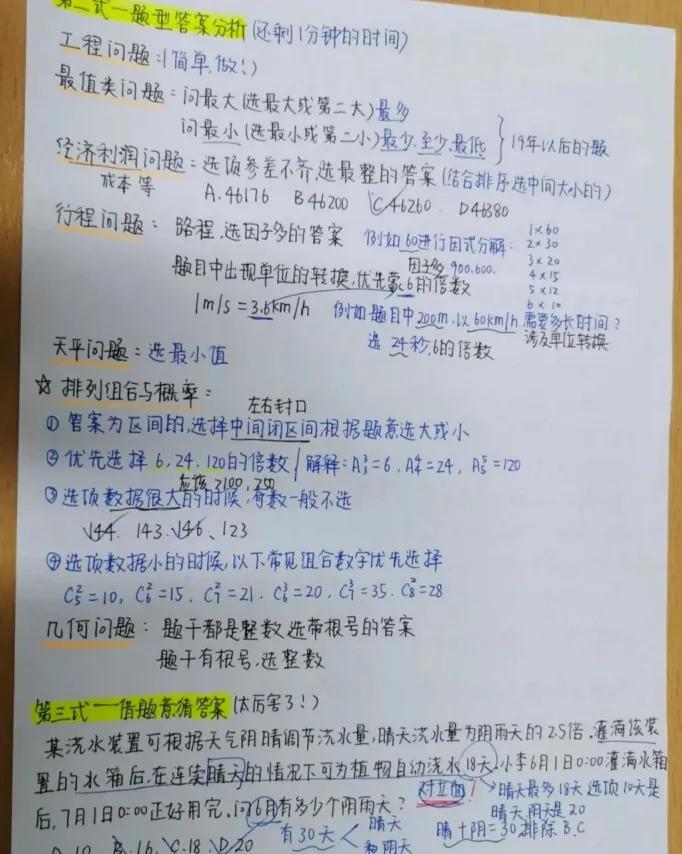 第二式一题型答案分析(还剩1分钟的时间)
工程问题:(简单,做!)
最值类问题=问最大(选最大或第二大)最多
问最小(选最小或第二小)最少.至少.最低
19年以后的题
经济利润问题=选项参差不齐,选最整的答案(结合排序,选中间大小的)
成本等
A.46176 B46200 C46260. D46380
行程问题: 路程,选因子多的答案 例如60进行因式分解:
1×60
2×30
3×20
4×15
5×12
6×10
因子多 900.600.
题目中出现单位的转换,优先蒙6的倍数
1m/s=3.6km/h
例如题目中200m.以60km/h,需要多长时间?
选24秒,6的倍数
涉及单位转换
天平问题=选最小值
☆排列组合与概率:
左右封口
①答案为区间的,选择中间闭区间根据题意选大或小
②优先选择6,24.120的倍数/解释:A₃³=6,A₄⁴=24,A₅⁵=120
应该≥100,250
③选项数据很大的时候,奇数一般不选
144. 143.146、123
④选项数据小的时候,以下常见组合数字优先选择
C₅²=10,C₆²=15,C₇²=21.C₆³=20,C₇³=35.C₈²=28
几何问题:题干都是整数,选带根号的答案
题干有根号,选整数
第三式一借题意猜答案(太厉害了!)
某浇水装置可根据天气阴晴调节浇水量,晴天浇水量为阴雨天的2.5倍.灌满该装
置的水箱后.在连续晴天的情况下可为植物自动浇水18天.小李6月1日0:00灌满水箱
后,7月1日0:00正好用完,问6月有多少个阴雨天?
对立面!
晴天最多18天选项10天是
晴天,阴天是20
有30天
晴天
和阴天
晴+阴=30,排除B.C
A.10 B.16 C.18 D.20